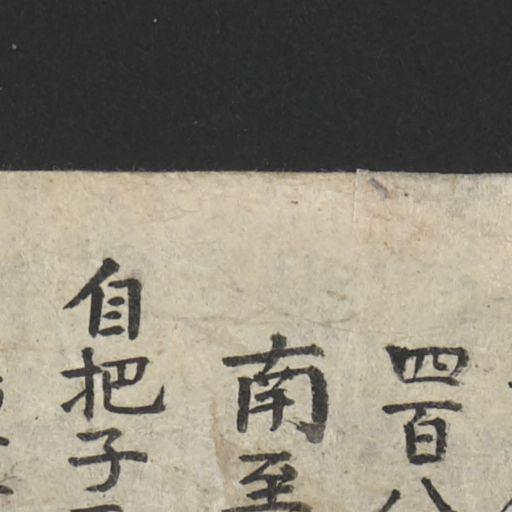 四百八
南至
自把子